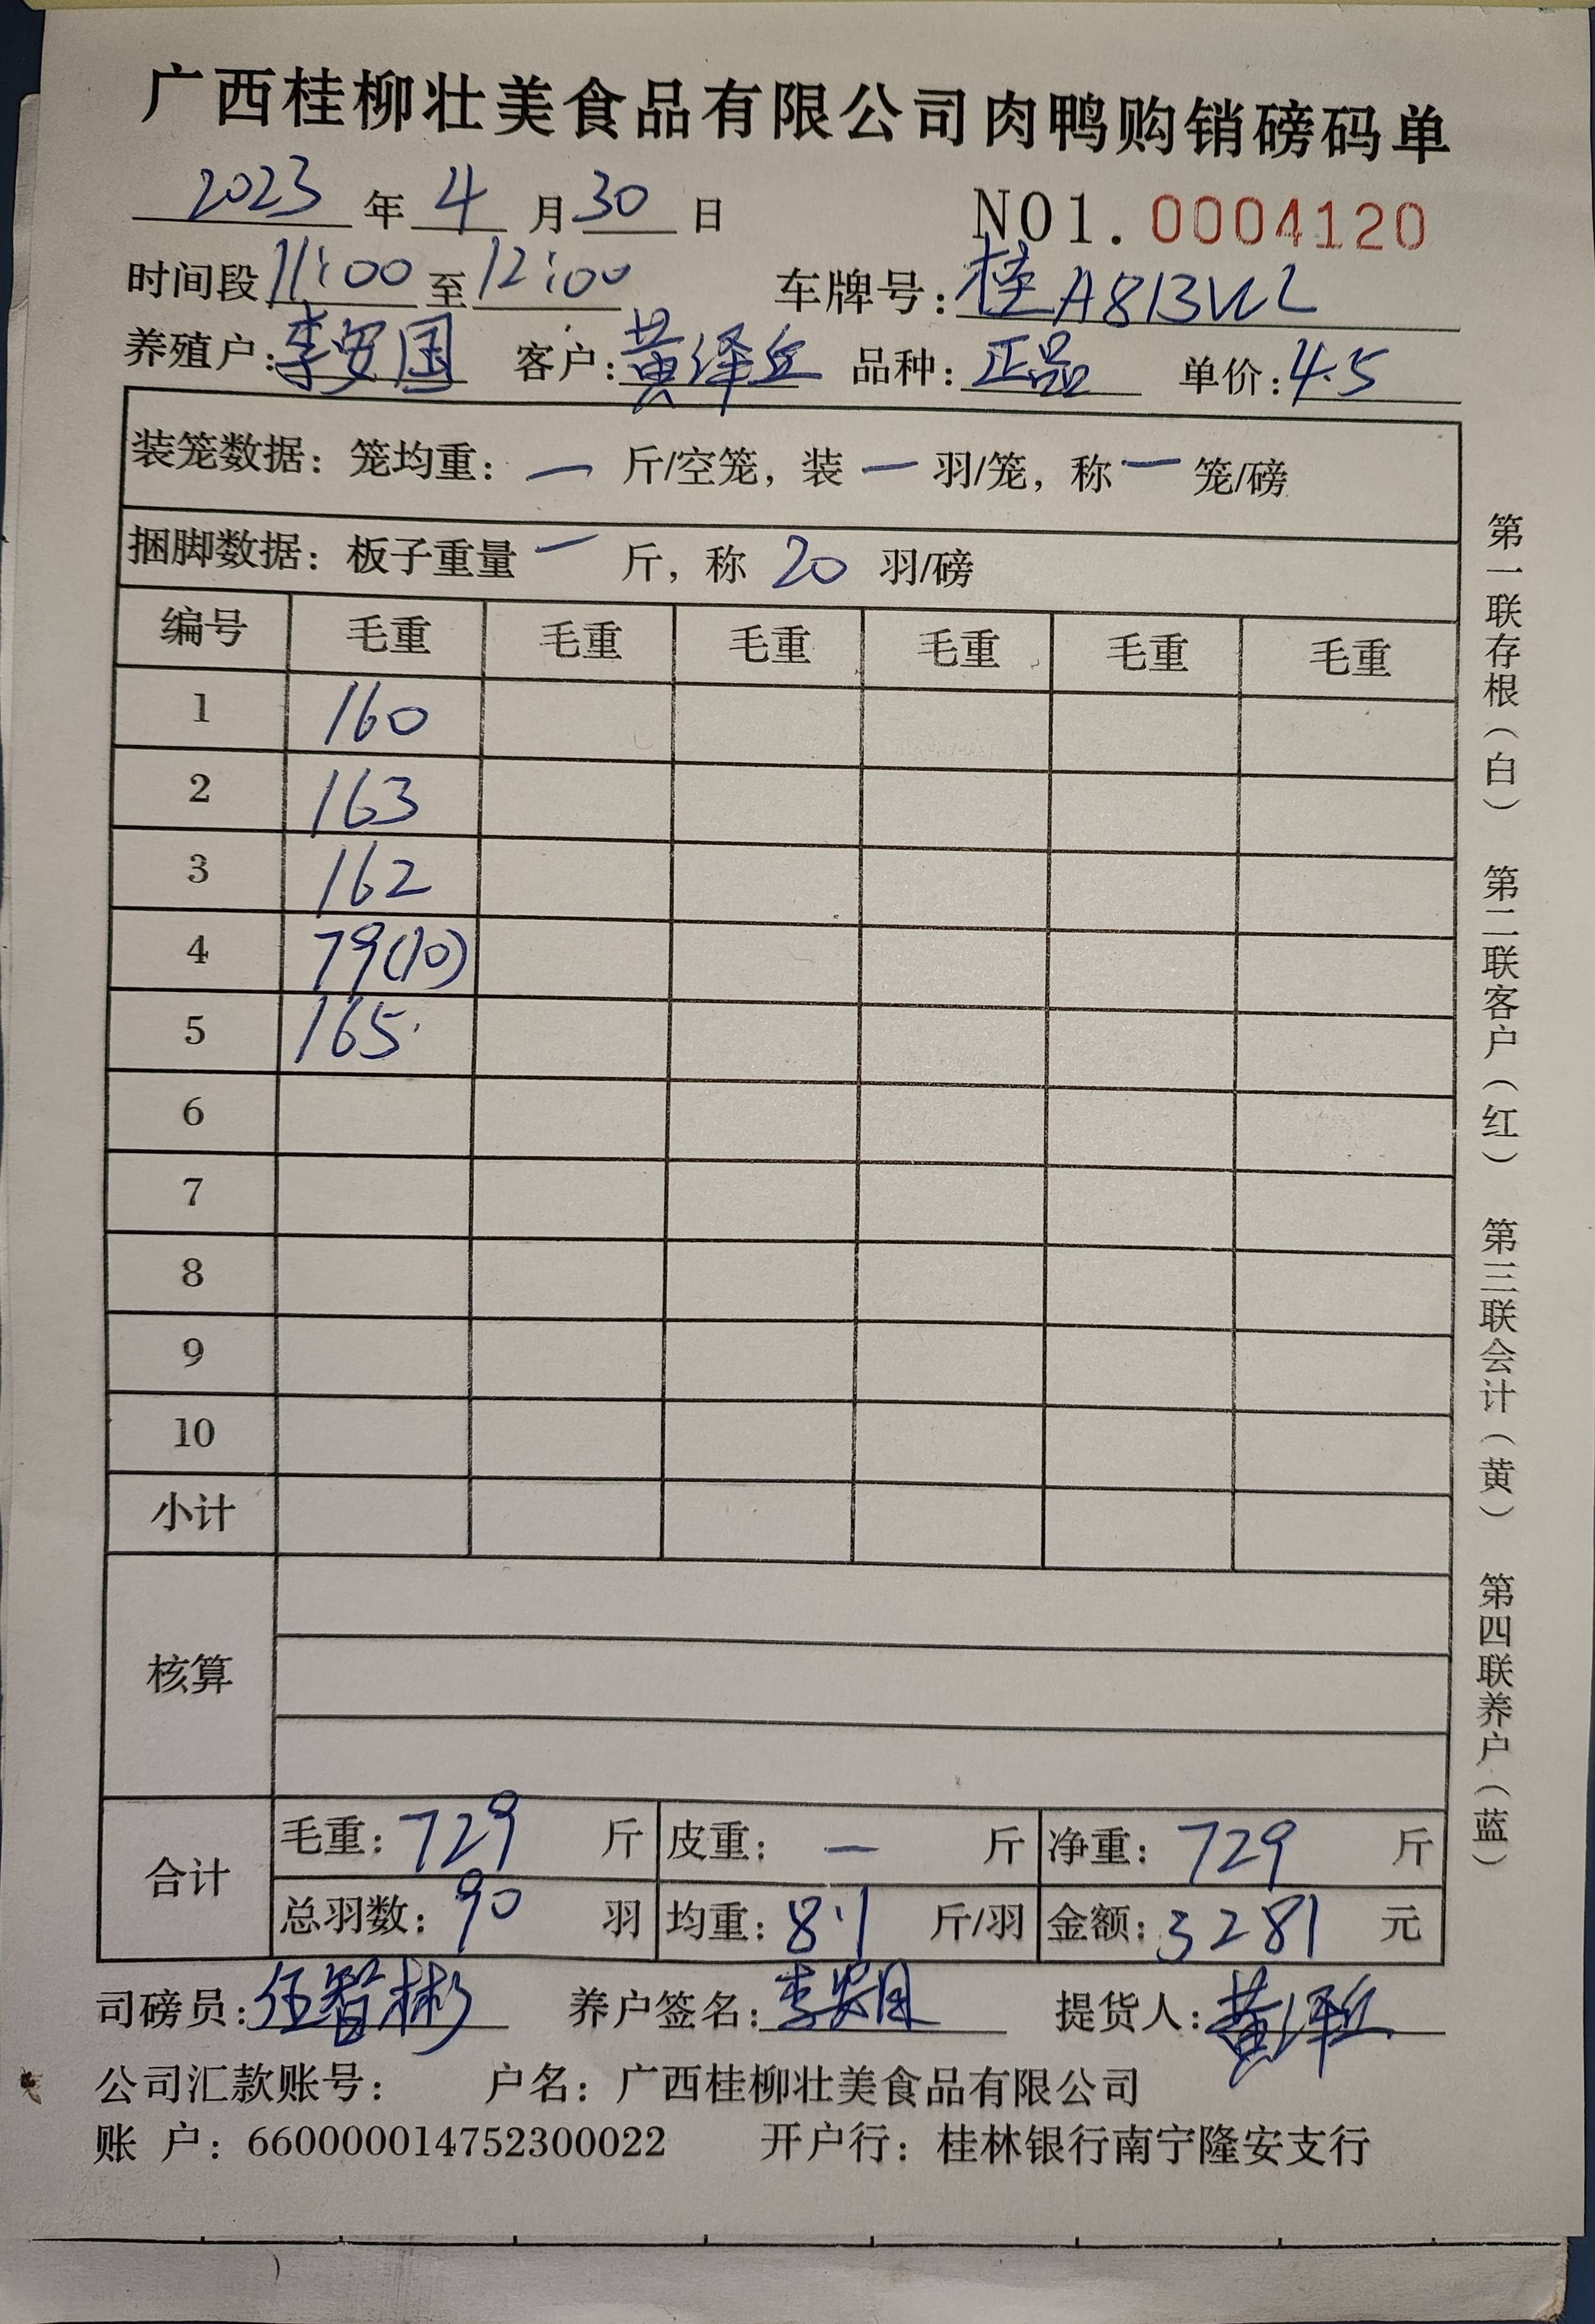 广西桂柳壮美食品有限公司肉鸭购销磅码单
2023 年 4 月 30 日 NO1. 0004120
时间段 11:00 至 12:00 车牌号: 桂A813VL
养殖户: 李安国 客户: 黄泽丘 品种: 正品 单价: 4.5
装笼数据: 笼均重: — 斤/空笼, 装 — 羽/笼, 称 — 笼/磅
捆脚数据: 板子重量 — 斤, 称 20 羽/磅
编号 毛重 毛重 毛重 毛重 毛重 毛重
1 160
2 163
3 162
4 79(10)
5 165
6
7
8
9
10
小计
核算
合计 毛重: 729 斤 皮重: — 斤 净重: 729 斤
总羽数: 90 羽 均重: 8.1 斤/羽 金额: 3281 元
司磅员: 伍智彬 养户签名: 李安国 提货人: 黄泽丘
公司汇款账号: 户名: 广西桂柳壮美食品有限公司
账 户: 660000014752300022 开户行: 桂林银行南宁隆安支行
第一联存根(白) 第二联客户(红) 第三联会计(黄) 第四联养户(蓝)